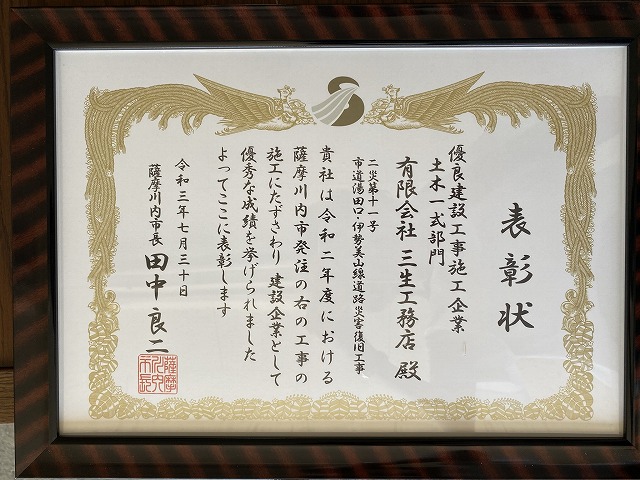 表彰状
優良建設工事施工企業
土木一式部門
有限会社 三生工務店 殿
二災第十一号
市道湯田口・伊勢美山線道路災害復旧工事
貴社は令和二年度における
薩摩川内市発注の右の工事の
施工にたずさわり 建設企業として
優秀な成績を挙げられました
よってここに表彰します
令和三年七月三十日
薩摩川内市長 田中良二
薩摩
川内
市長